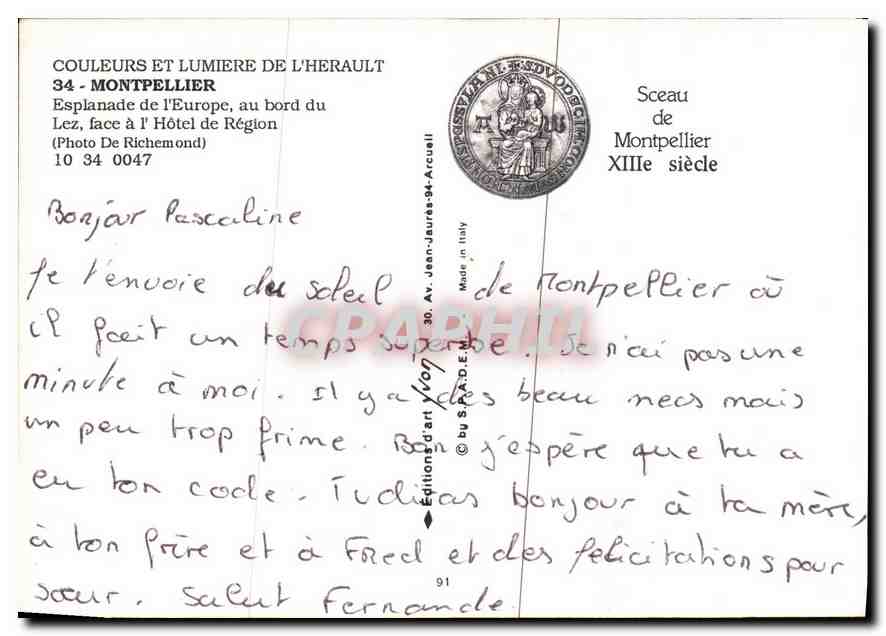 COULEURS ET LUMIERE DE L'HERAULT
34 - MONTPELLIER
Esplanade de l'Europe, au bord du
Lez, face à l' Hôtel de Région
(Photo De Richemond)
10 34 0047
Sceau
de
Montpellier
XIIIe siècle
Bonjour Pascaline
Je t'envoie du soleil de Montpellier où
il fait un temps superbe. Je n'ai pas une
minute à moi. Il y a des beau mecs mais
un peu trop frime. Bon j'espère que tu a
eu ton code. Tu diras bonjour à ta mère,
à ton frère et à Fred et des felicitations pour
sœur. Salut Fernande
Éditions d'art Yvon 30. Av. Jean-Jaurès-94-Arcueil
© by S.P.A.D.E.M. Made in Italy
91
CPAPHIL